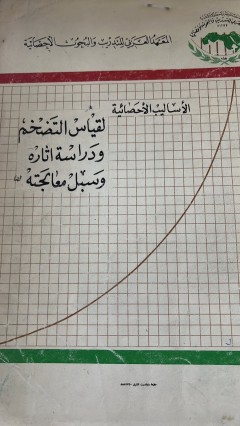 المعهد العربي للتدريب والبحوث الإحصائية
الأساليب الأحصائية
لقياس التضخم
ودراسة آثاره
وسبل معالجته